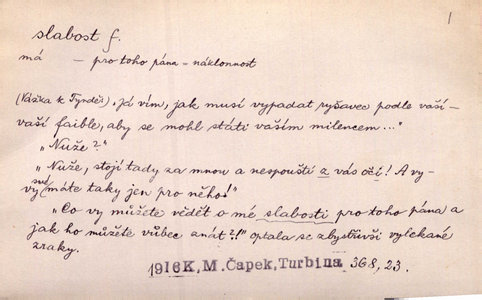 1
slabost f.
má — pro toho pána = náklonnost
(Vážka k Tyndeř) „Já vím, jak musí vypadat ryšavec podle vaší-
vaší faible, aby se mohl státi vaším milencem..."
„Nuže?"
„Nuže, stojí tady za mnou a nespouští z vás očí! A vy-
vy své máte taky jen pro něho!"
„Co vy můžete vědět o mé slabosti pro toho pána a
jak ho můžete vůbec znát?!" optala se zbystřivši vylekané
zraky.
1916K, M. Čapek, Turbina 368, 23.